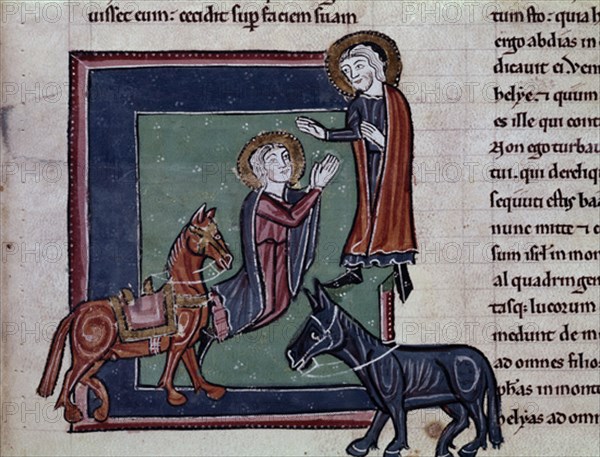 uisset eum: cecidit sup faciem suam
tum sto: quia h
ergo abdias in
dicauit ei. Ven
helye: & quum
es ille qui cont
Non ego turbau
tui. qui dereliq
sequuti estis baa
nunc mitte & c
sum isrl in mon
al quadringen
tasq: lucorum
medunt de m
ad omnes filios
phas in monte
helyas ad omn